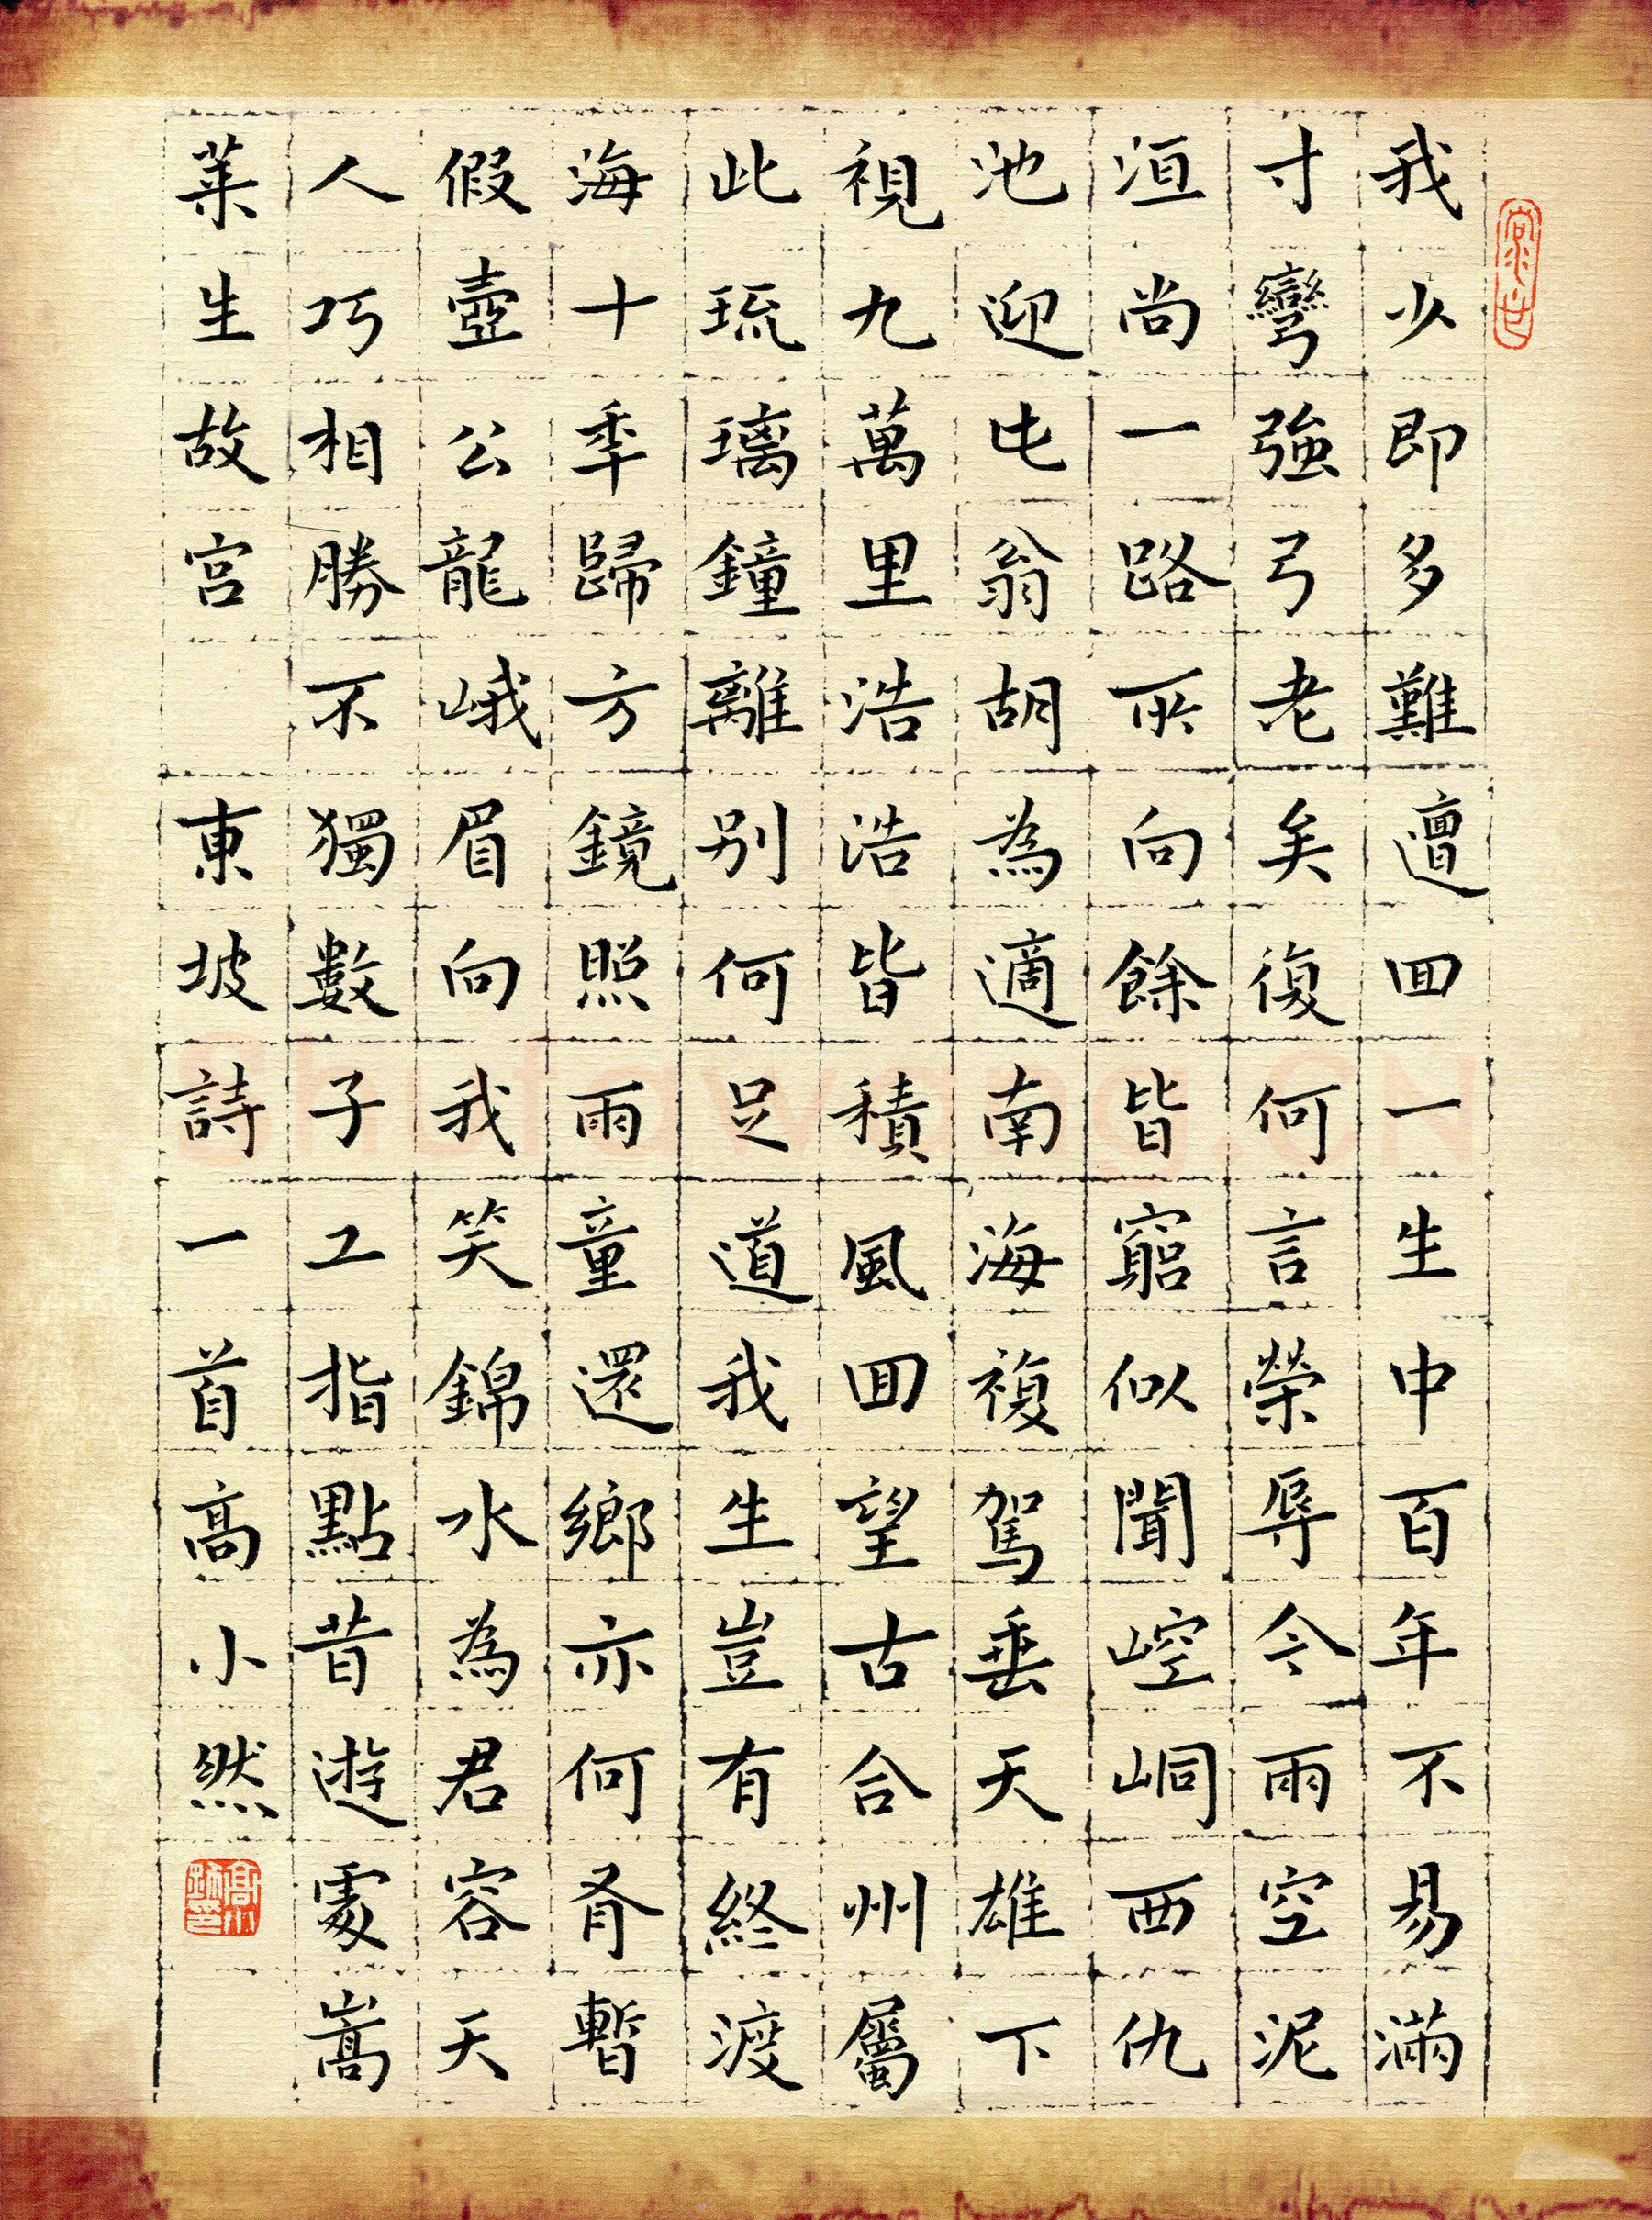 我少即多難邅回一生中百年不易滿
寸彎強弓老矣復何言榮辱今兩空泥
洹尚一路所向餘皆窮似聞崆峒西仇
池迎此翁胡為適南海復駕垂天雄下
視九萬里浩浩皆積風回望古合州屬
此琉璃鐘離別何足道我生豈有終渡
海十季歸方鏡照兩童還鄉亦何有暫
假壺公龍峨眉向我笑錦水為君容天
人巧相勝不獨數子工指點昔遊處蒿
萊生故宮 東坡詩一首高小然